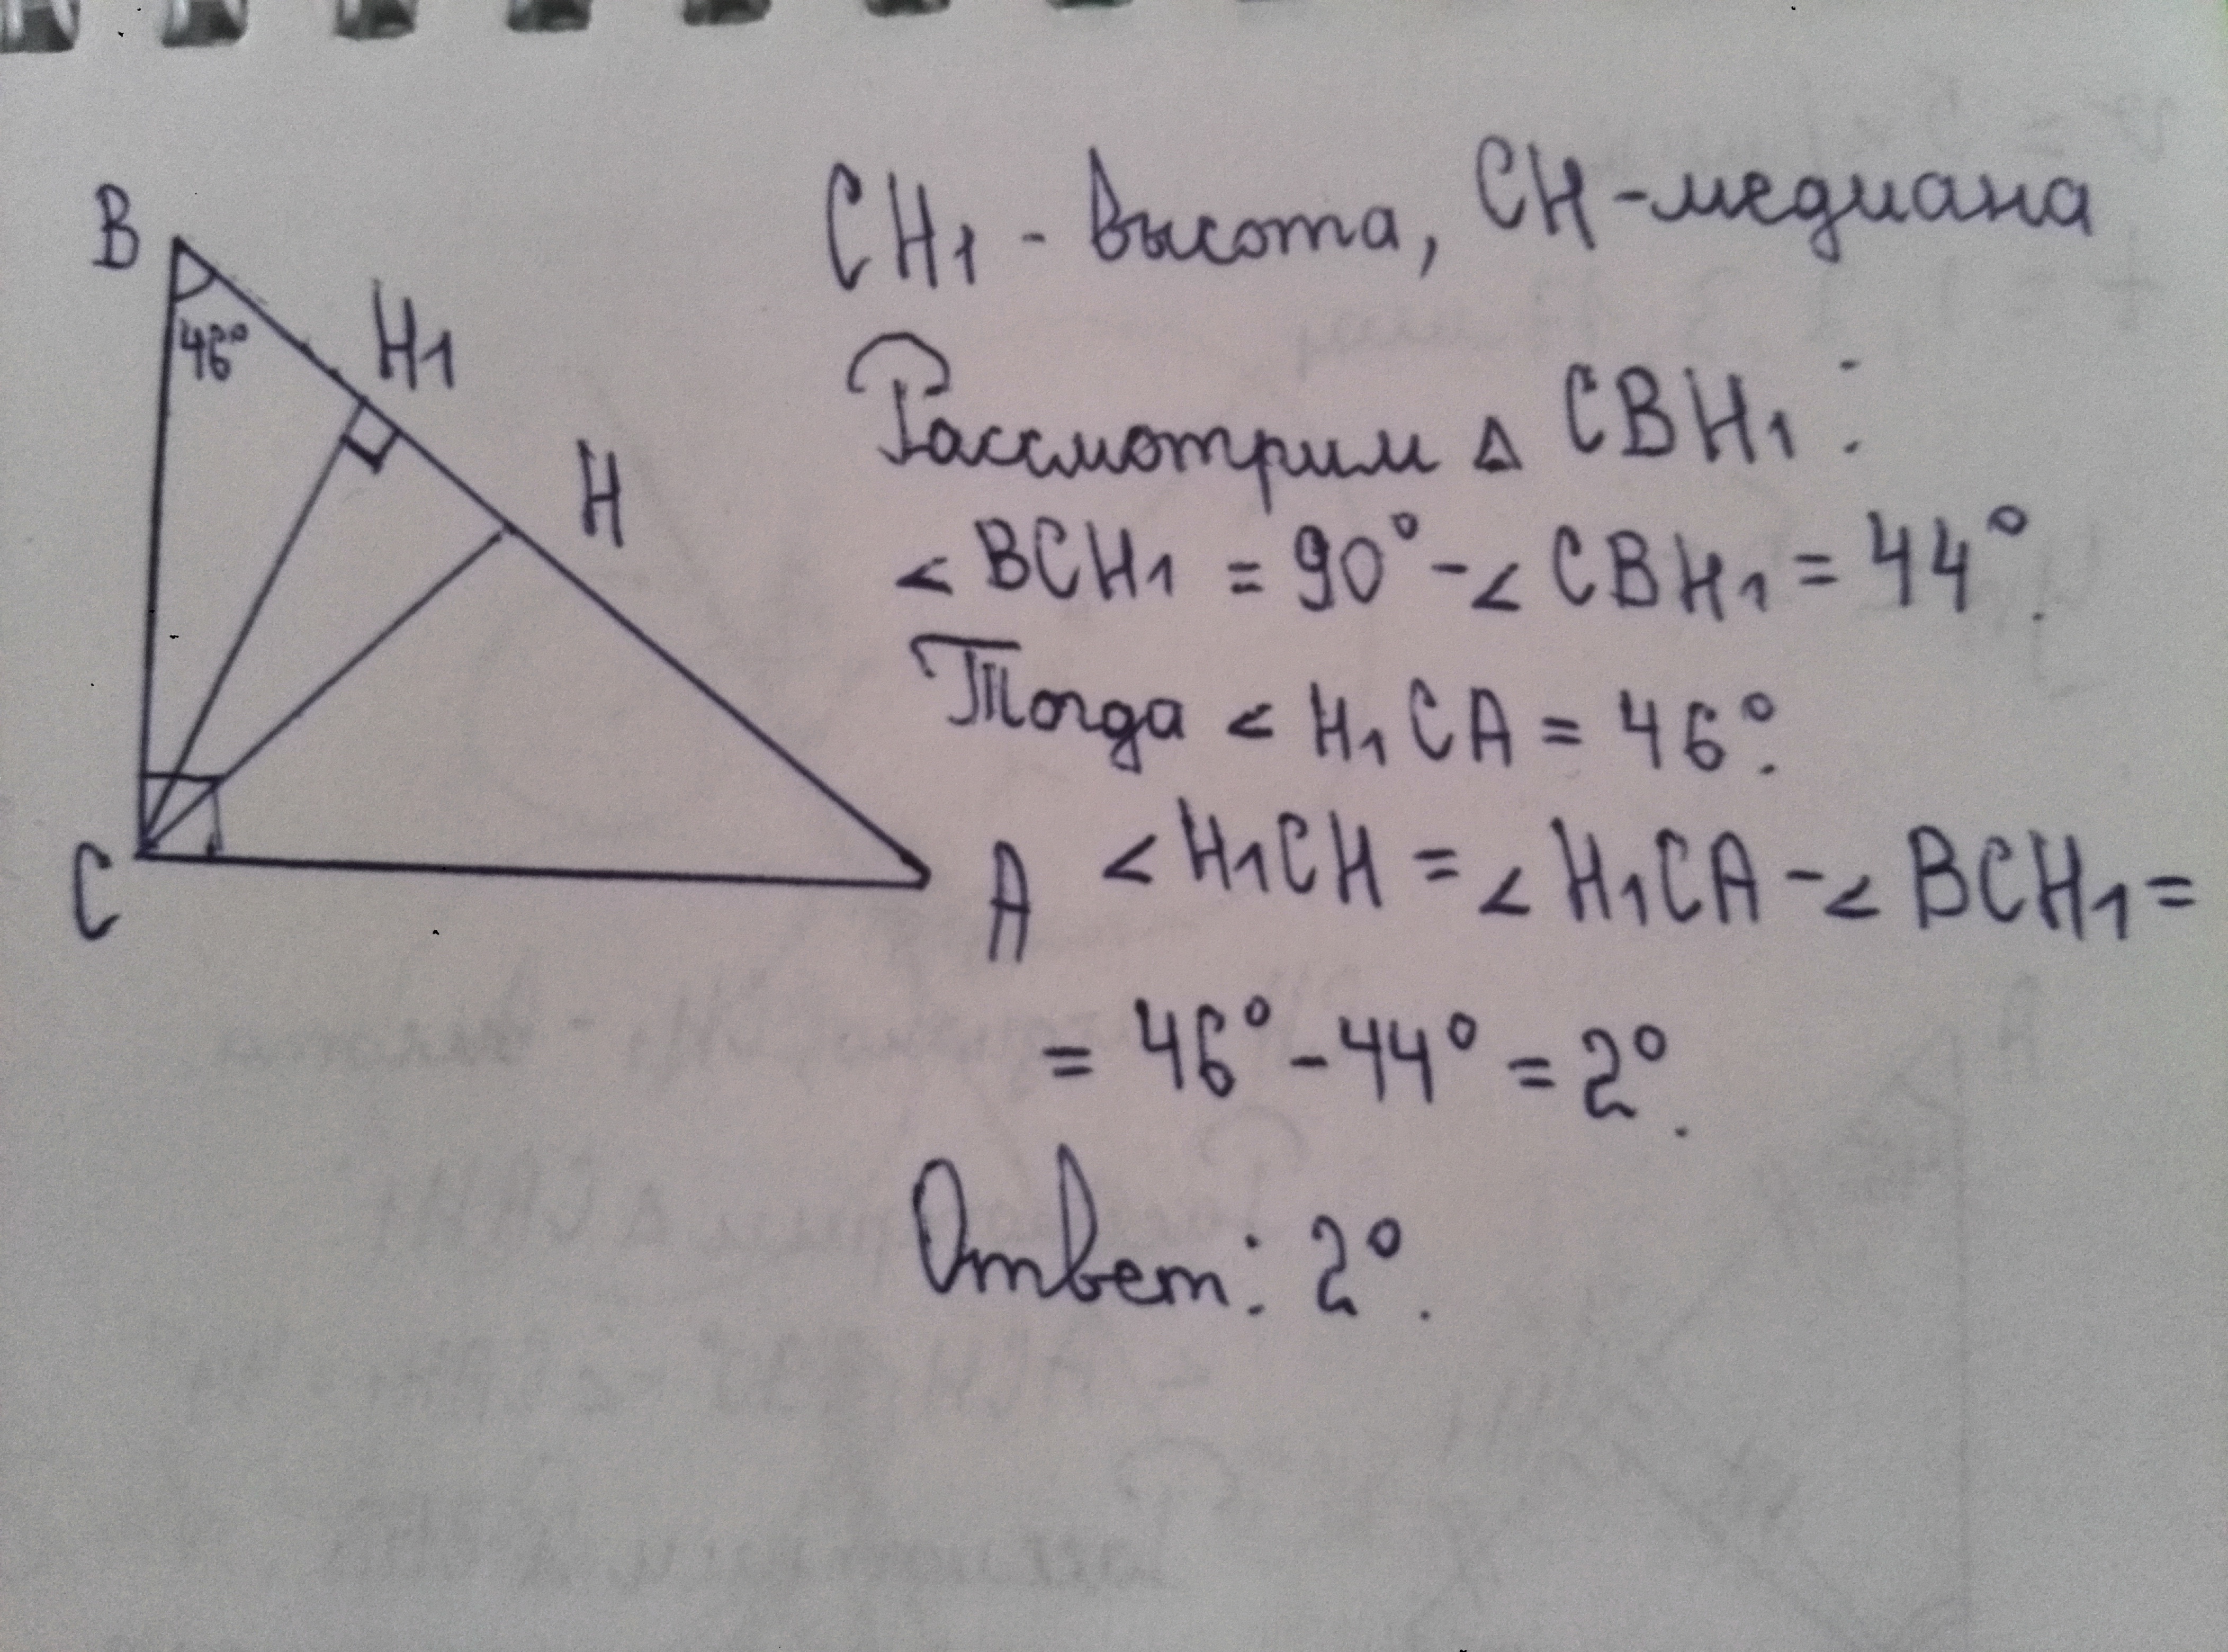 B
46°
H1
H
C
A
CH1 - высота, CH - медиана
Рассмотрим Δ CBH1:
< BCH1 = 90° - < CBH1 = 44°.
Тогда < H1CA = 46°.
< H1CH = < H1CA - < BCH1 =
= 46° - 44° = 2°.
Ответ: 2°.